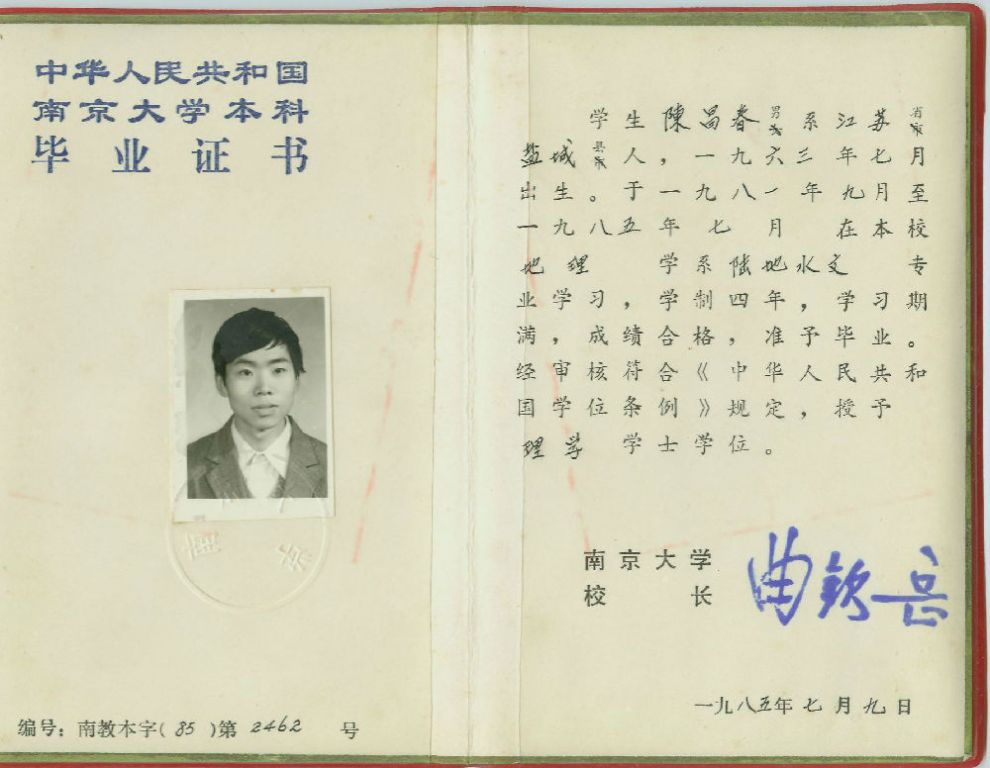 中华人民共和国
南京大学本科
毕业证书
编号：南教本字(85)第2462号
学生陳昌春男系江苏省
盐城县人，一九六三年七月
出生。于一九八一年九月至
一九八五年七月在本校
地理学系陆地水文专
业学习，学制四年，学习期
满，成绩合格，准予毕业。
经审核符合《中华人民共和
国学位条例》规定，授予
理学学士学位。
南京大学
校长 曲钦岳
一九八五年七月九日